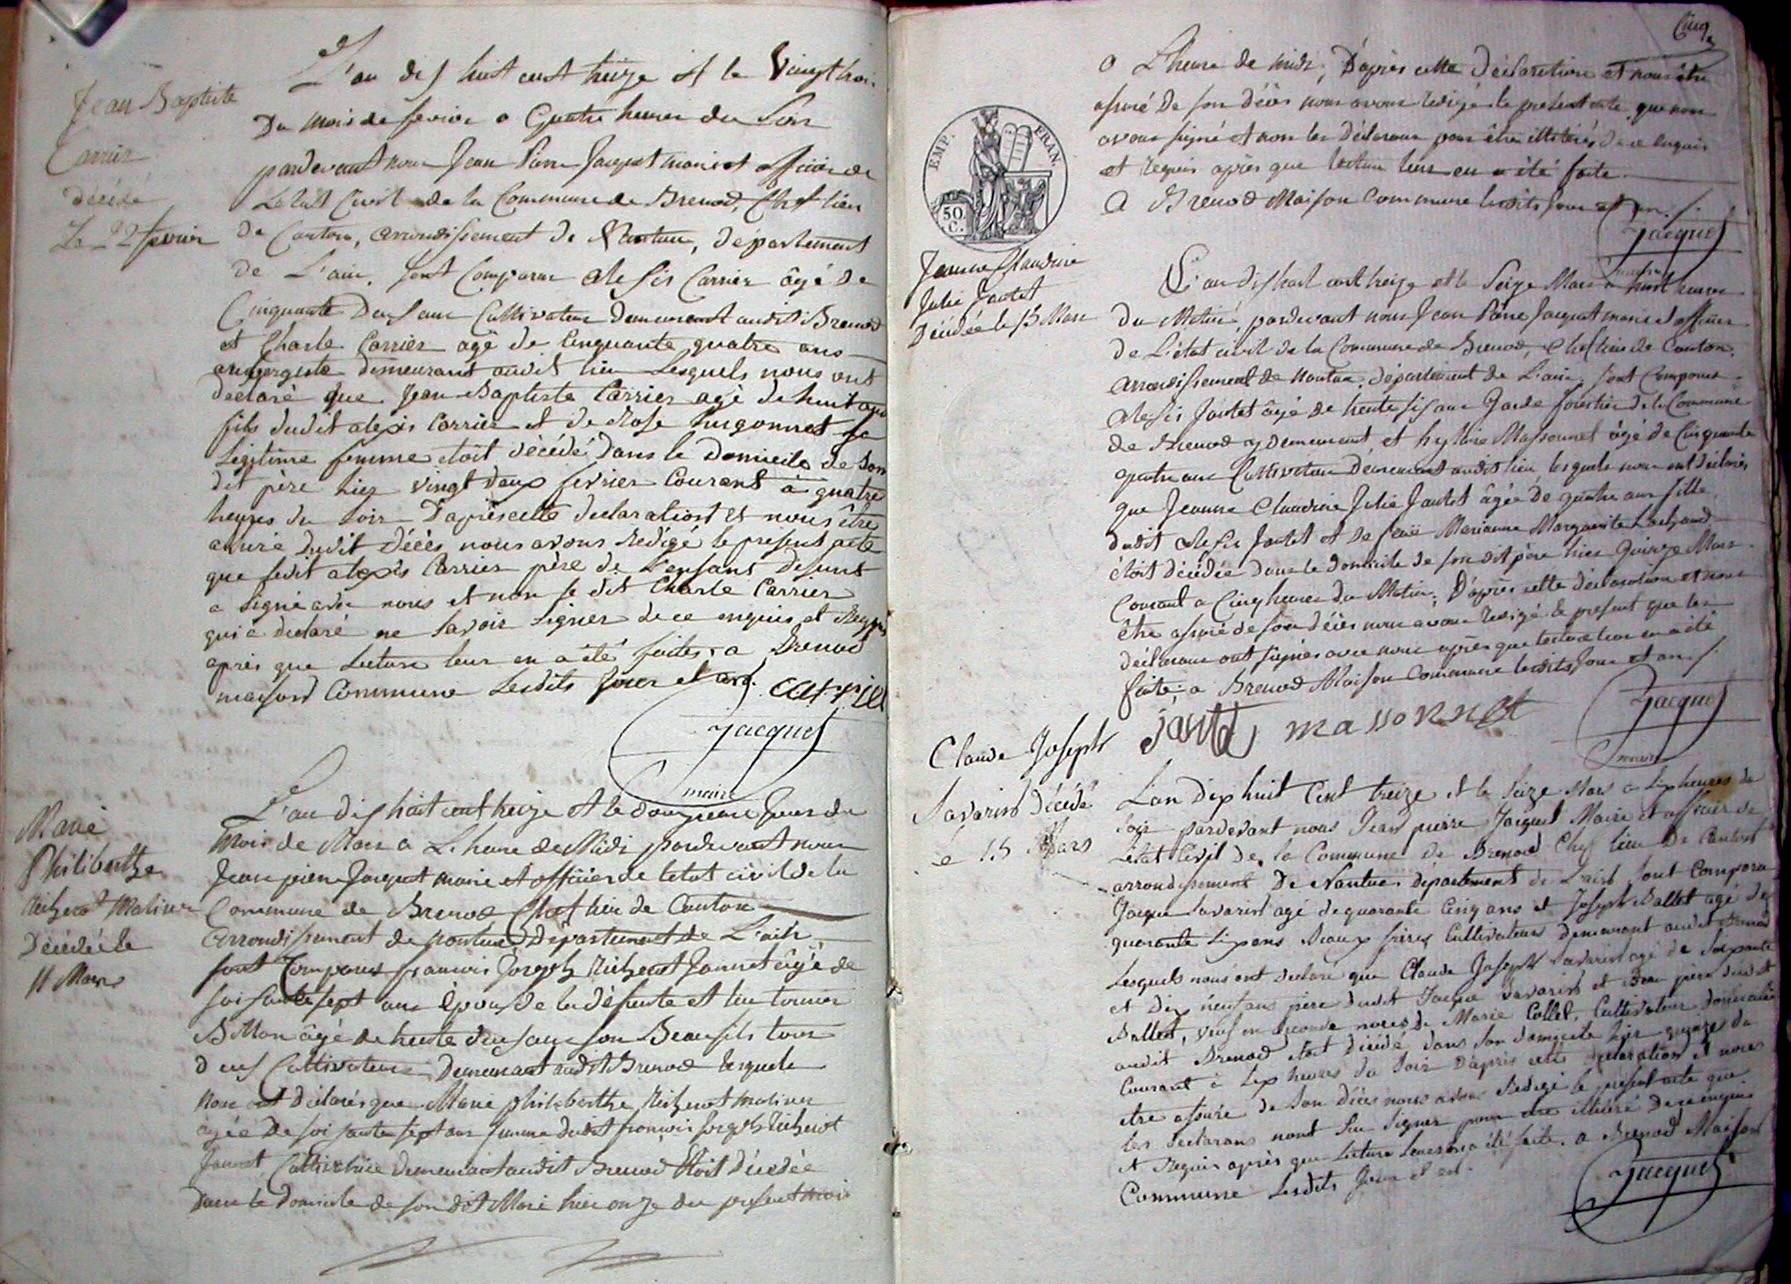 Jean Baptiste
Carrier
décédé
Le 22 fevrier
L'an dis huit cent treize et le Vingt trois
Du mois de fevrier a Quatre heures du Soir
pardevant nous Jean Pierre Jacquet maire et officier de
L'etat Civil de la Commune de Brenod, Chef lieu
De Canton, arrondissement de Nantua, département
de L'ain, sont Comparus Alesis Carrier âgé de
Cinquante Deux ans Cultivateur Demeurant audit Brenod
et Charle Carrier agé de Cinquante quatre ans
aubergiste demeurant audit lieu Lesquels nous ont
declaré que Jean Baptiste Carrier agé de huit ans
fils dudit alexis Carrier et de Rose hugonnet sa
Legitime femme etoit décédé dans le Domicile de Son
dit père hier vingt deux fevrier Courant à quatre
heures du Soir D'après cette declaration et nous être
assuré dudit décès nous avons Rédigé le present acte
que ledit alexis Carrier père de L'enfant defunt
a signé avec nous et non le dit Charle Carrier
qui a declaré ne Savoir signer de ce enquis et Requis
après que Lecture leur en a été faite, a Brenod
maison Commune Lesdits Jour et an. carrier
Jacquet
maire
Marie
Philiberthe
Richerot Moliner
Décédée le
11 Mars
L'an dis huit cent treize et le douzieme Jour du
Mois de Mars a L'heure de Midi pardevant nous
Jean pierre Jacquet maire et officier de letat civil de la
Commune de Brenod Chef lieu de Canton
Arrondissement de Nantua Département de L'ain
sont Comparus francois Joseph Richerot Jannet âgé de
soisante sept ans Epoux de la défunte et
Billon âgé de trente deux ans son Beaufils tous
deux Cultivateurs Demeurant audit Brenod lesquels
Nous ont déclarés que Marie philiberthe Richerot moliner
agée De soisante sept ans femme dudit francois Joseph Richerot
Jannet Cultivatrice demeurant audit Brenod Etoit Décédée
Dans le Domicile de son dit Mari hier onze du present mois
Cinq
a L'heure de midi, D'après cette déclaration et nous être
assuré De son décès nous avons redigé le présent acte que nous
avons signé et non les Déclarans pour être illitérés de ce enquis
et requis après que lecture leur en a été faite
A Brenod Maison Commune lesdits Jour et an.
Jacquet
maire
EMP. FRAN.
50 C.
Jeanne Claudine
Julie Jantet
Décédée le 15 Mars
L'an dis huit cent treize et le Seize Mars a huit heures
Du Matin, pardevant nous Jean Pierre Jacquet maire et officier
de L'état civil de la Commune de Brenod, Chef lieu de Canton,
arrondissement de Nantua, département de L'ain, sont Comparus
Alesis Jantet âgé de trente six ans Garde forestier de la Commune
de Brenod y demeurant et Massonnet âgé de Cinquante
quatre ans Cultivateur Demeurant audit lieu lesquels nous ont déclarés
que Jeanne Claudine Julie Jantet âgée de quatre ans fille
dudit Alesis Jantet et de feue Marianne Marguerite
étoit décédée Dans le domicile de son dit père hier Quinze Mars
Courant a Cinq heures du Matin, D'après cette déclaration et nous
être assuré de son décès nous avons redigé le present que les
déclarans ont signés avec nous après que lecture leur en a été
faite, a Brenod Maison Commune lesdits Jour et an.
jantet massonnet Jacquet
maire
Claude Joseph
Savarin Décédé
le 15 Mars
L'an Dix huit Cent treize et le Seize Mars a Six heures du
Soir pardevant nous Jean pierre Jacquet Maire et officier de
L'etat Civil de la Commune de Brenod Chef lieu De Canton
arrondissement De Nantua departement de L'ain Sont Comparus
Jacque Savarin agé de quarante Cinq ans et Joseph Ballet agé De
quarante Six ans Beaux frères Cultivateurs demeurant audit Brenod
Lesquels nous ont declaré que Claude Joseph Savarin agé de Soixante
et Dix neuf ans père dudit Jacque Savarin et Beau pere dudit
Ballet, veuf en seconde noces de Marie Collet, Cultivateur domicilié
audit Brenod Etoit Décédé dans son domicile hier quinze du
Courant à Six heures du Soir D'après cette declaration et nous
etre assuré de Son Décès nous avons Redigé le present acte que
les declarans n'ont Su Signer pour etre illitéré De ce enquis
et Requis après que Lecture Leur en a été faite. a Brenod Maison
Commune Lesdits Jour et an.
Jacquet